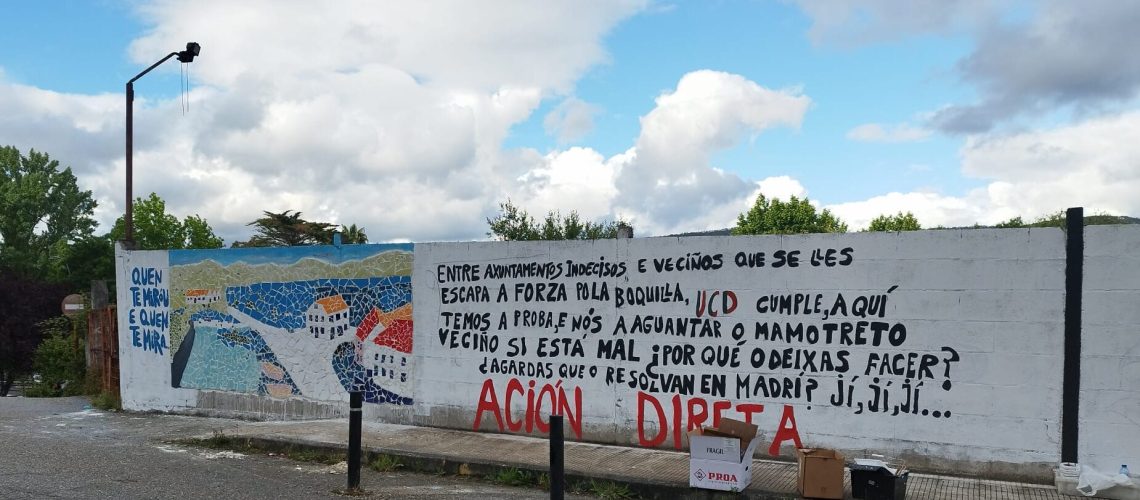 QUEN
TE MIROU
E QUEN
TE MIRA
ENTRE AXUNTAMENTOS INDECISOS E VECIÑOS QUE SE LLES
ESCAPA A FORZA POLA BOQUILLA, UCD CUMPLE, AQUÍ
TEMOS A PROBA, E NÓS A AGUANTAR O MAMOTRETO
VECIÑO SI ESTÁ MAL ¿POR QUÉ O DEIXAS FACER?
¿AGARDAS QUE O RESOLVAN EN MADRI? JÍ, JÍ, JÍ...
ACIÓN DIRETA
FRAGIL
PROA